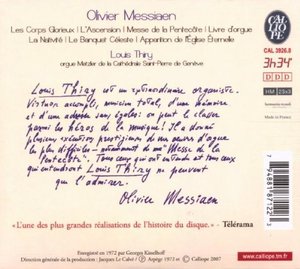 Olivier Messiaen
Les Corps Glorieux | L'Ascension | Messe de la Pentecôte | Livre d'orgue
La Nativité | Le Banquet Céleste | Apparition de l'Église Éternelle
Louis Thiry
orgue Metzler de la Cathédrale Saint-Pierre de Genève
CALLIOPE
CAL 3926.8
3h34
DDD
HM 23x3
harmonia mundi
Louis Thiry est un extraordinaire organiste.
Virtuose accompli, musicien total, d'une mémoire
et d'une adresse sans égales : on peut le classer
parmi les héros de la musique ! Il a donné
plusieurs exécutions prestigieuses de mes œuvres d'orgue
les plus difficiles - notamment de ma "Messe de la
Pentecôte". Tous ceux qui ont entendu et tous ceux
qui entendront Louis Thiry ne peuvent
que l'admirer.
Olivier Messiaen
«L'une des plus grandes réalisations de l'histoire du disque.» - Télérama
Enregistré en 1972 par Georges Kisselhoff
Direction générale de la production : Jacques Le Calvé | Ⓟ Arpège 1972 et © Calliope 2007
www.calliope.tm.fr